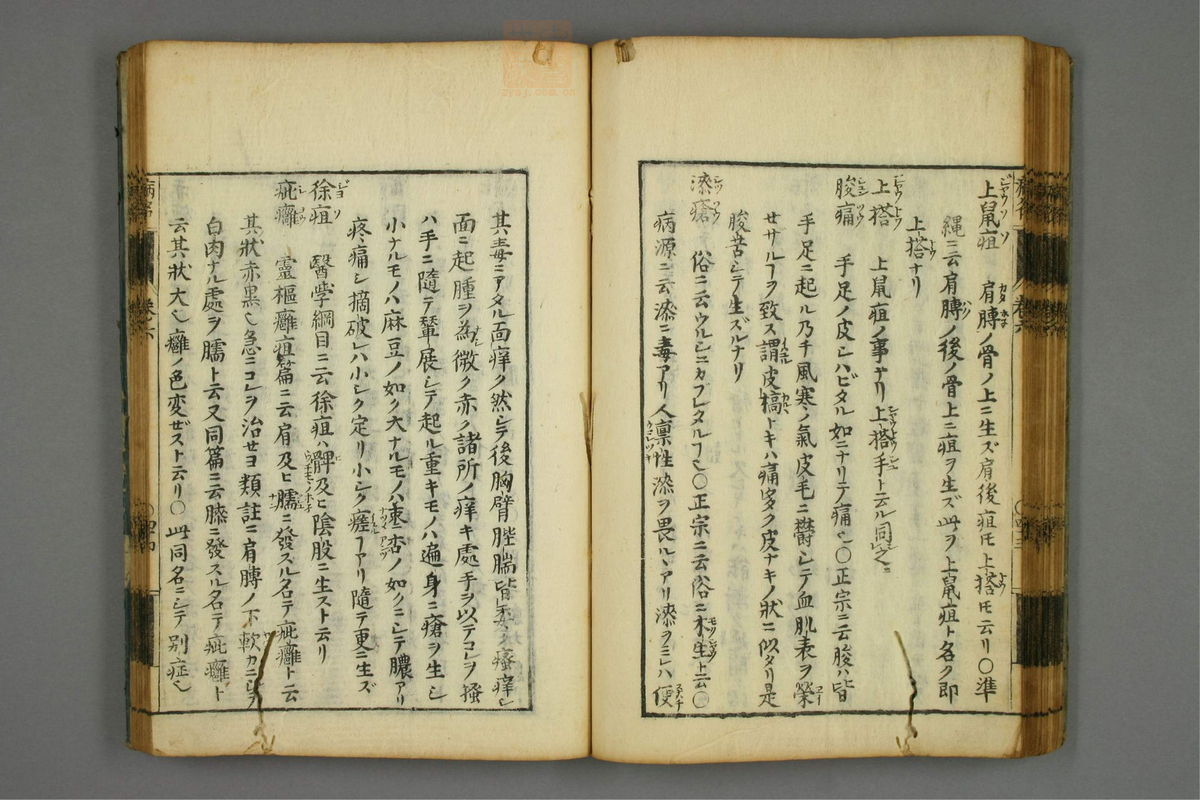 上鼠疽 肩膊ノ骨ノ上ニ生ズ肩後疽トモ上搭トモ云リ〇準
繩ニ云肩膊ノ後ノ骨上ニ疽ヲ生ズ此ヲ上鼠疽ト名ク即
上搭ナリ
上搭 上鼠疽ノ事ナリ上搭手ト云ル同之
朘痛 手足ノ皮シハビタル如ニナリテ痛也〇正宗ニ云朘ハ皆
手足ニ起ル乃チ風寒ノ氣皮毛ニ鬱シテ血肌表ヲ榮
セサルヿヲ致ス謂皮槁トキハ痛多ク皮ナキノ状ニ似タリ是
朘苦シテ生ズルナリ
漆瘡 俗ニ云ウルシニカブレタルヿ也〇正宗ニ云俗ニ木生ト云〇
病源ニ云漆ニ毒アリ人禀性漆ヲ畏ルヽアリ漆ヲミレハ便
其毒ニアタル面痒ク然シテ後胸臂𦙶腨皆瘙痒シ
面ニ起腫ヲ為微ク赤ク諸所ノ痒キ處手ヲ以テコレヲ搔
ハ手ニ隨テ輦展シテ起ル重キモノハ遍身ニ瘡ヲ生シ
小ナルモノハ麻豆ノ如ク大ナルモノハ棗杏ノ如クニシテ膿アリ
疼痛シ摘破レハ小シク定リ小シク瘥ヿアリ隨テ更ニ生ズ
徐疽 醫學綱目ニ云徐疽ハ髀及ヒ陰股ニ生スト云リ
疵癰 靈樞癰疽篇ニ云肩及ヒ臑ニ發スル名テ疵癰ト云
其狀赤黒也急ニコレヲ治セヨ類註ニ肩膊ノ下軟カニシテ
白肉ナル處ヲ臑ト云又同篇ニ云膝ニ發スル名テ疵癰ト
云其狀大也癰ノ色変ゼスト云リ〇此同名ニシテ別症也